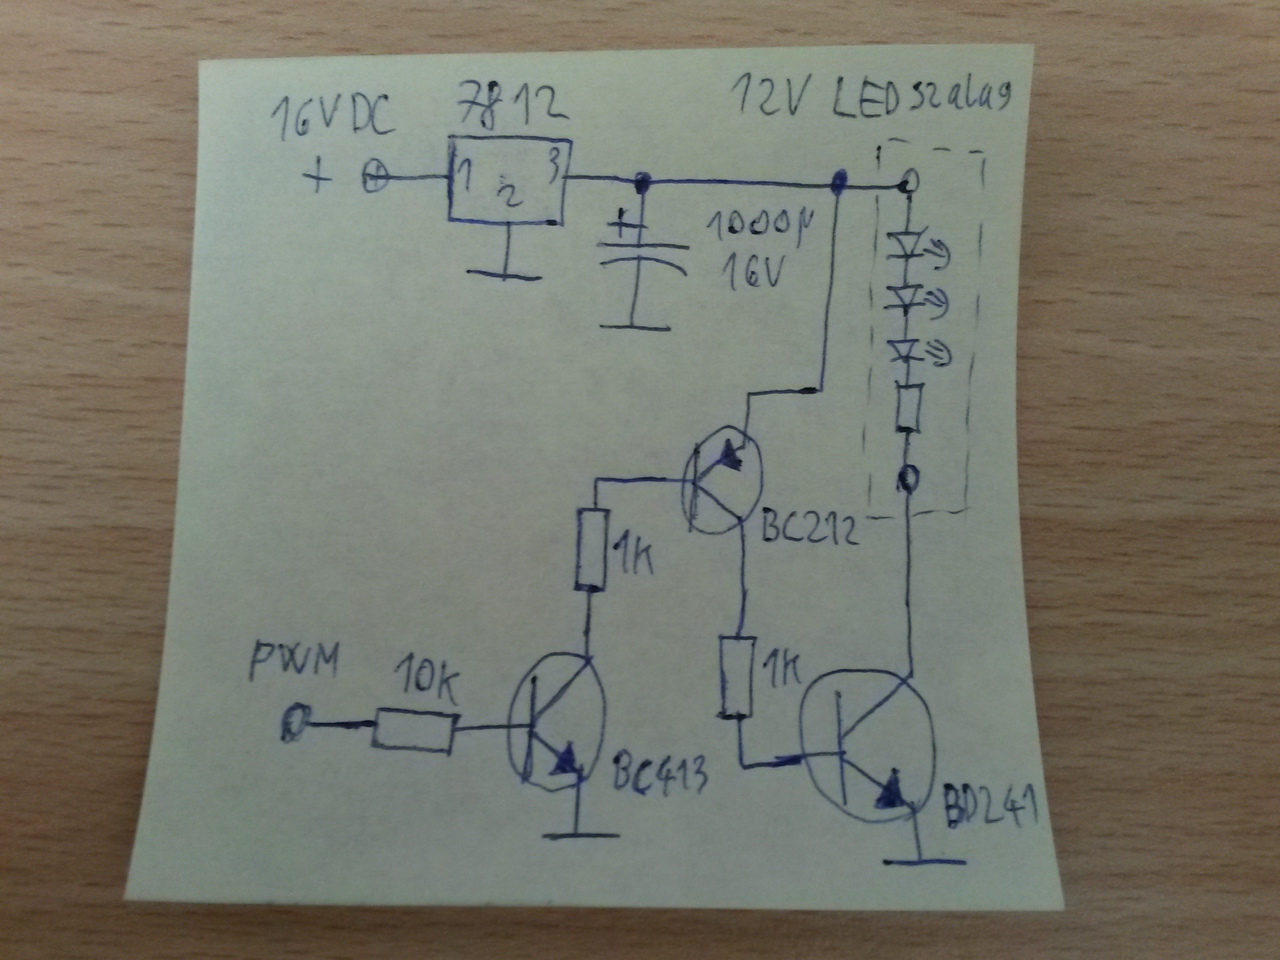 16VDC
7812
12V LED szalag
+
1
2
3
+
1000µ
16V
BC212
1K
PWM
10K
1K
BC413
BD241